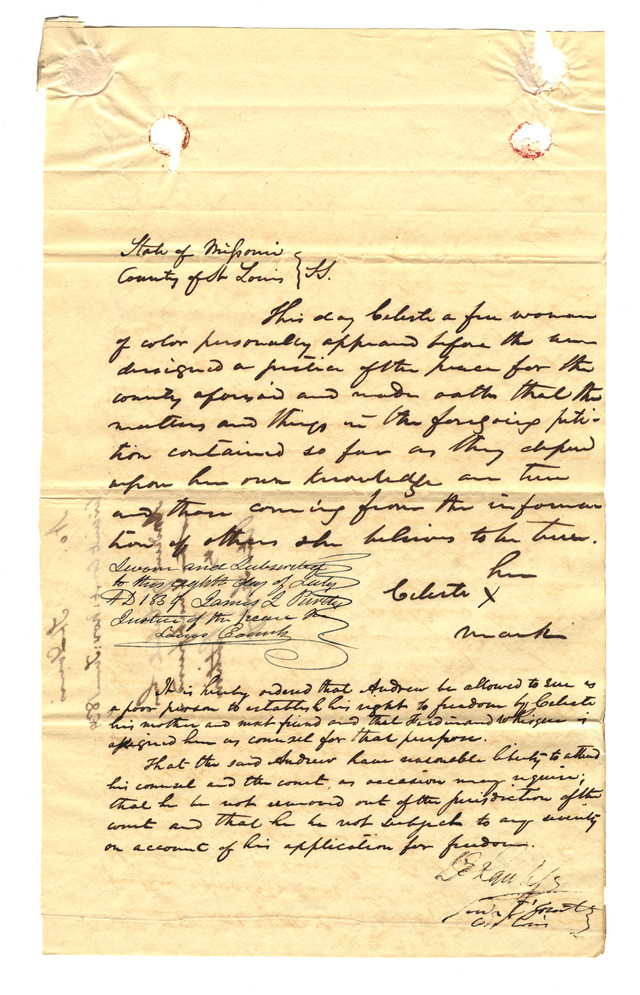 State of Missouri
County of St Louis } SS.
This day Celeste a free woman
of color personally appeared before the un
dersigned a justice of the peace for the
county aforesaid and made oath that the
matters and things in the foregoing peti-
tion contained so far as they depend
upon her own knowledge are true
and those coming from the informa
tion of others she believes to be true.
Sworn and Subscribed
to this eighth day of July
AD 1839 James L Purdy
Justice of the peace St
Louis County
her
Celeste X
mark
It is hereby ordered that Andrew be allowed to sue as
a poor person to establish his right to freedom by Celeste
his mother and next friend and that Ferdinand Risque is
assigned him as counsel for that purpose.
That the said Andrew have reasonable liberty to attend
his counsel and the court, as occasion may require;
that he be not removed out of the jurisdiction of the
court and that he be not subject to any severity
on account of his application for freedom.